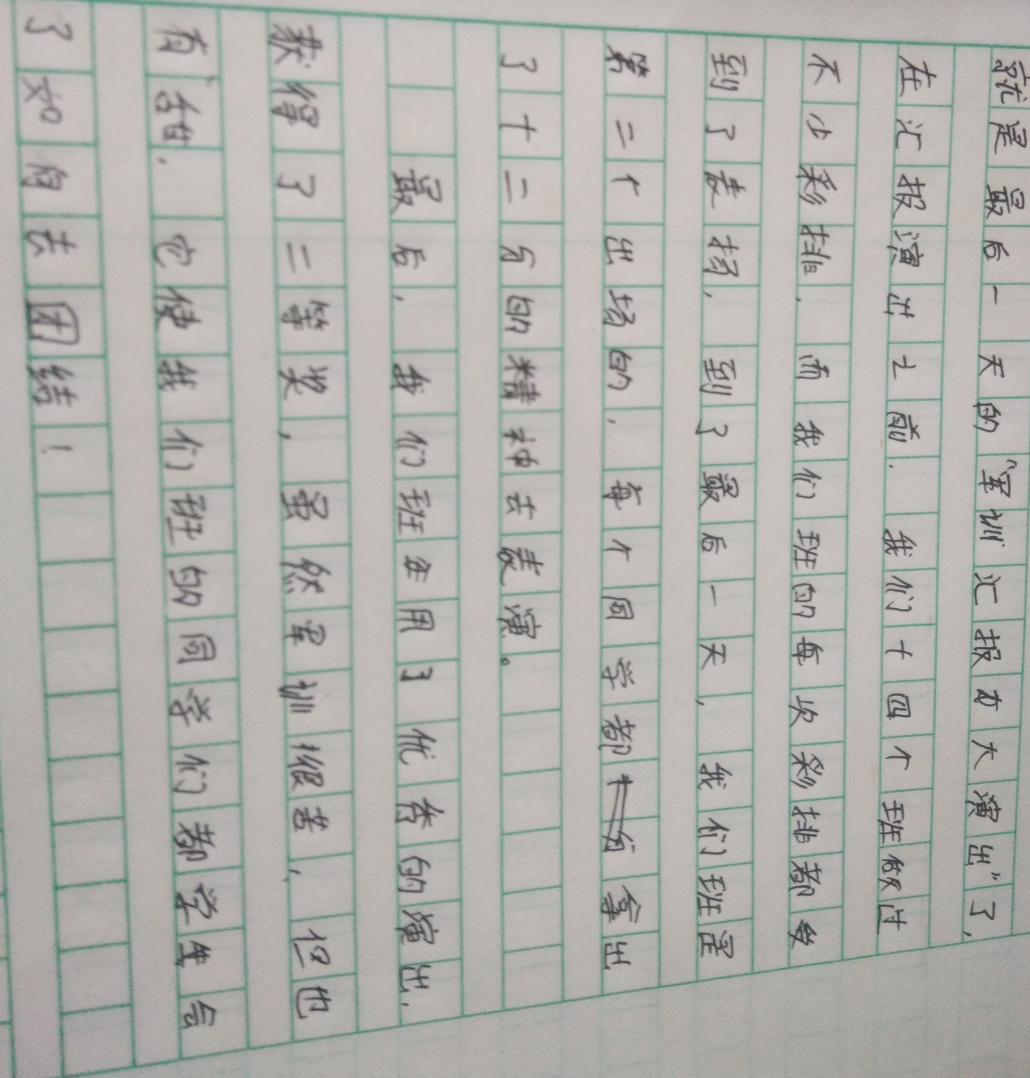 就是最后一天的“军训汇报大演出”了，
在汇报演出之前，我们十四个班做过
不少彩排，而我们班的每次彩排都受
到了表扬，到了最后一天，我们班是
第二个出场的，每个同学都拿出
了十二分的精神去表演。
最后，我们班用了优秀的演出，
获得了二等奖，虽然军训很苦，但也
有甜，它使我们班的同学们都学会
了如何去团结！